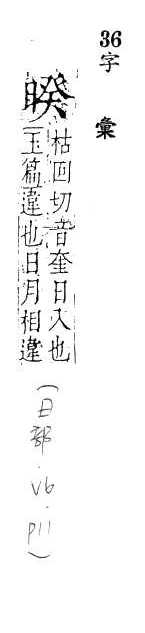 36
字
彙
睽
枯回切音奎日入也
玉篇違也日月相違
(日部.V6.P11)